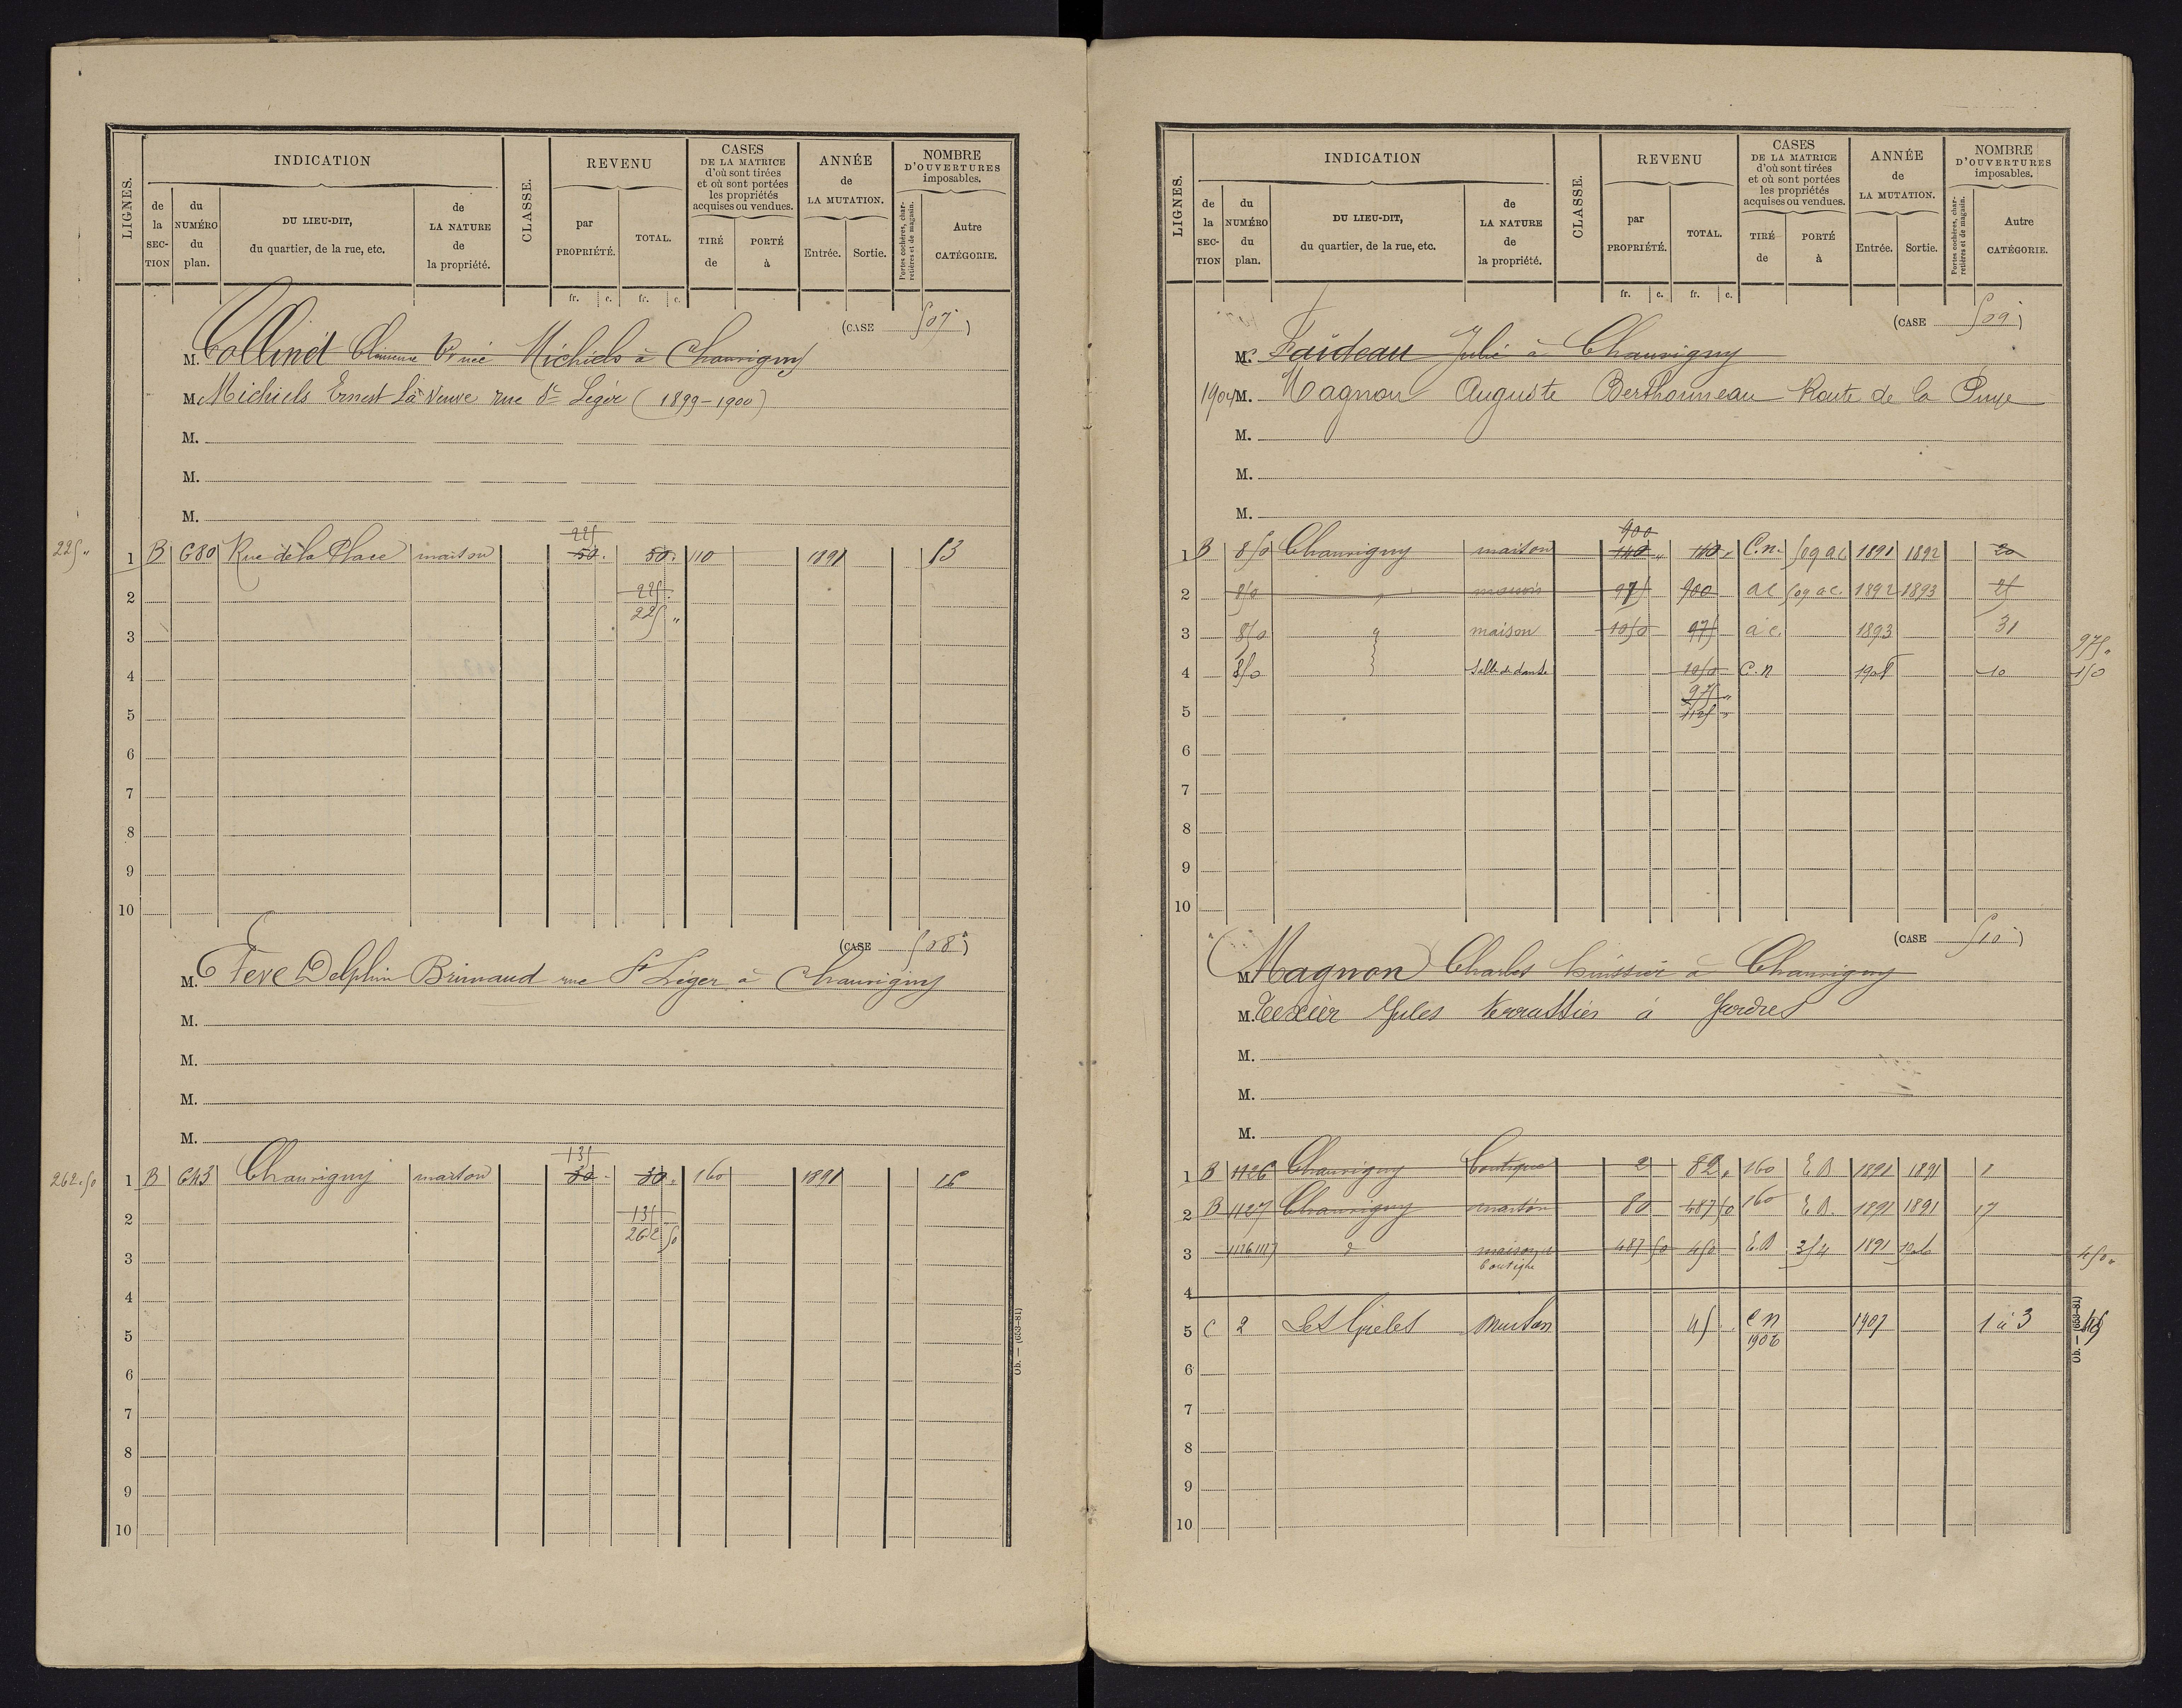 LIGNES.
INDICATION
de la SECTION
du NUMÉRO du plan.
DU LIEU-DIT, du quartier, de la rue, etc.
de LA NATURE de la propriété.
CLASSE.
REVENU
par PROPRIÉTÉ.
TOTAL.
CASES DE LA MATRICE d'où sont tirées et où sont portées les propriétés acquises ou vendues.
TIRÉ de
PORTÉ à
ANNÉE de LA MUTATION.
Entrée.
Sortie.
NOMBRE D'OUVERTURES imposables.
Portes cochères, charretières et de magasin.
Autre CATÉGORIE.
fr. c. fr. c.
(CASE 507)
M. Collinet Vve née Michiels à Chauvigny
M. Michiels Ernest La Veuve rue St Léger (1899-1900)
M.
M.
M.
225
225 „ 1 B 680 Rue de la Place maison 50. 50. 110 1891 13
2 225.
225 „
3
4
5
6
7
8
9
10
(CASE 508)
M. Feve Delphin Brunaud rue St Léger à Chauvigny
M.
M.
M.
M.
135
262.50 1 B 643 Chauvigny maison 30. 30. 160 1891 16
2 135
262 50
3
4
5
6
7
8
9
10
Ob. — (653-81)
LIGNES.
INDICATION
de la SECTION
du NUMÉRO du plan.
DU LIEU-DIT, du quartier, de la rue, etc.
de LA NATURE de la propriété.
CLASSE.
REVENU
par PROPRIÉTÉ.
TOTAL.
CASES DE LA MATRICE d'où sont tirées et où sont portées les propriétés acquises ou vendues.
TIRÉ de
PORTÉ à
ANNÉE de LA MUTATION.
Entrée.
Sortie.
NOMBRE D'OUVERTURES imposables.
Portes cochères, charretières et de magasin.
Autre CATÉGORIE.
fr. c. fr. c.
(CASE 509)
M. Faideau Julie à Chauvigny
1904 M. Magnon Auguste Berthonneau Route de la Puye
M.
M.
M.
900
1 B 850 Chauvigny maison 140 „ 140 „ C.n. 509 ac 1891 1892 20
2 850 maison 975 900 ac 509 ac. 1892 1893 25
3 850 maison 1050 975 ac. 1893 31 975 „
4 850 Salle de danse 1050 C.n 10 150
975 „
5 1125 „
6
7
8
9
10
(CASE 510)
M. Magnon Charles huissier à Chauvigny
M. Texier Jules terrassier à Jardres
M.
M.
M.
1 B 1126 Chauvigny boutique 2 82 „ 160 E.B 1891 1891 1
2 B 1127 Chauvigny maison 80 487 50 160 E.B. 1891 1891 17
3 1126 1127 d maison boutique 487 50 450 E.B 354 1891 450 „
4
5 C 2 maison 45 cn 1906 1907 1 à 3 45
6
7
8
9
10
Ob. — (653-81)